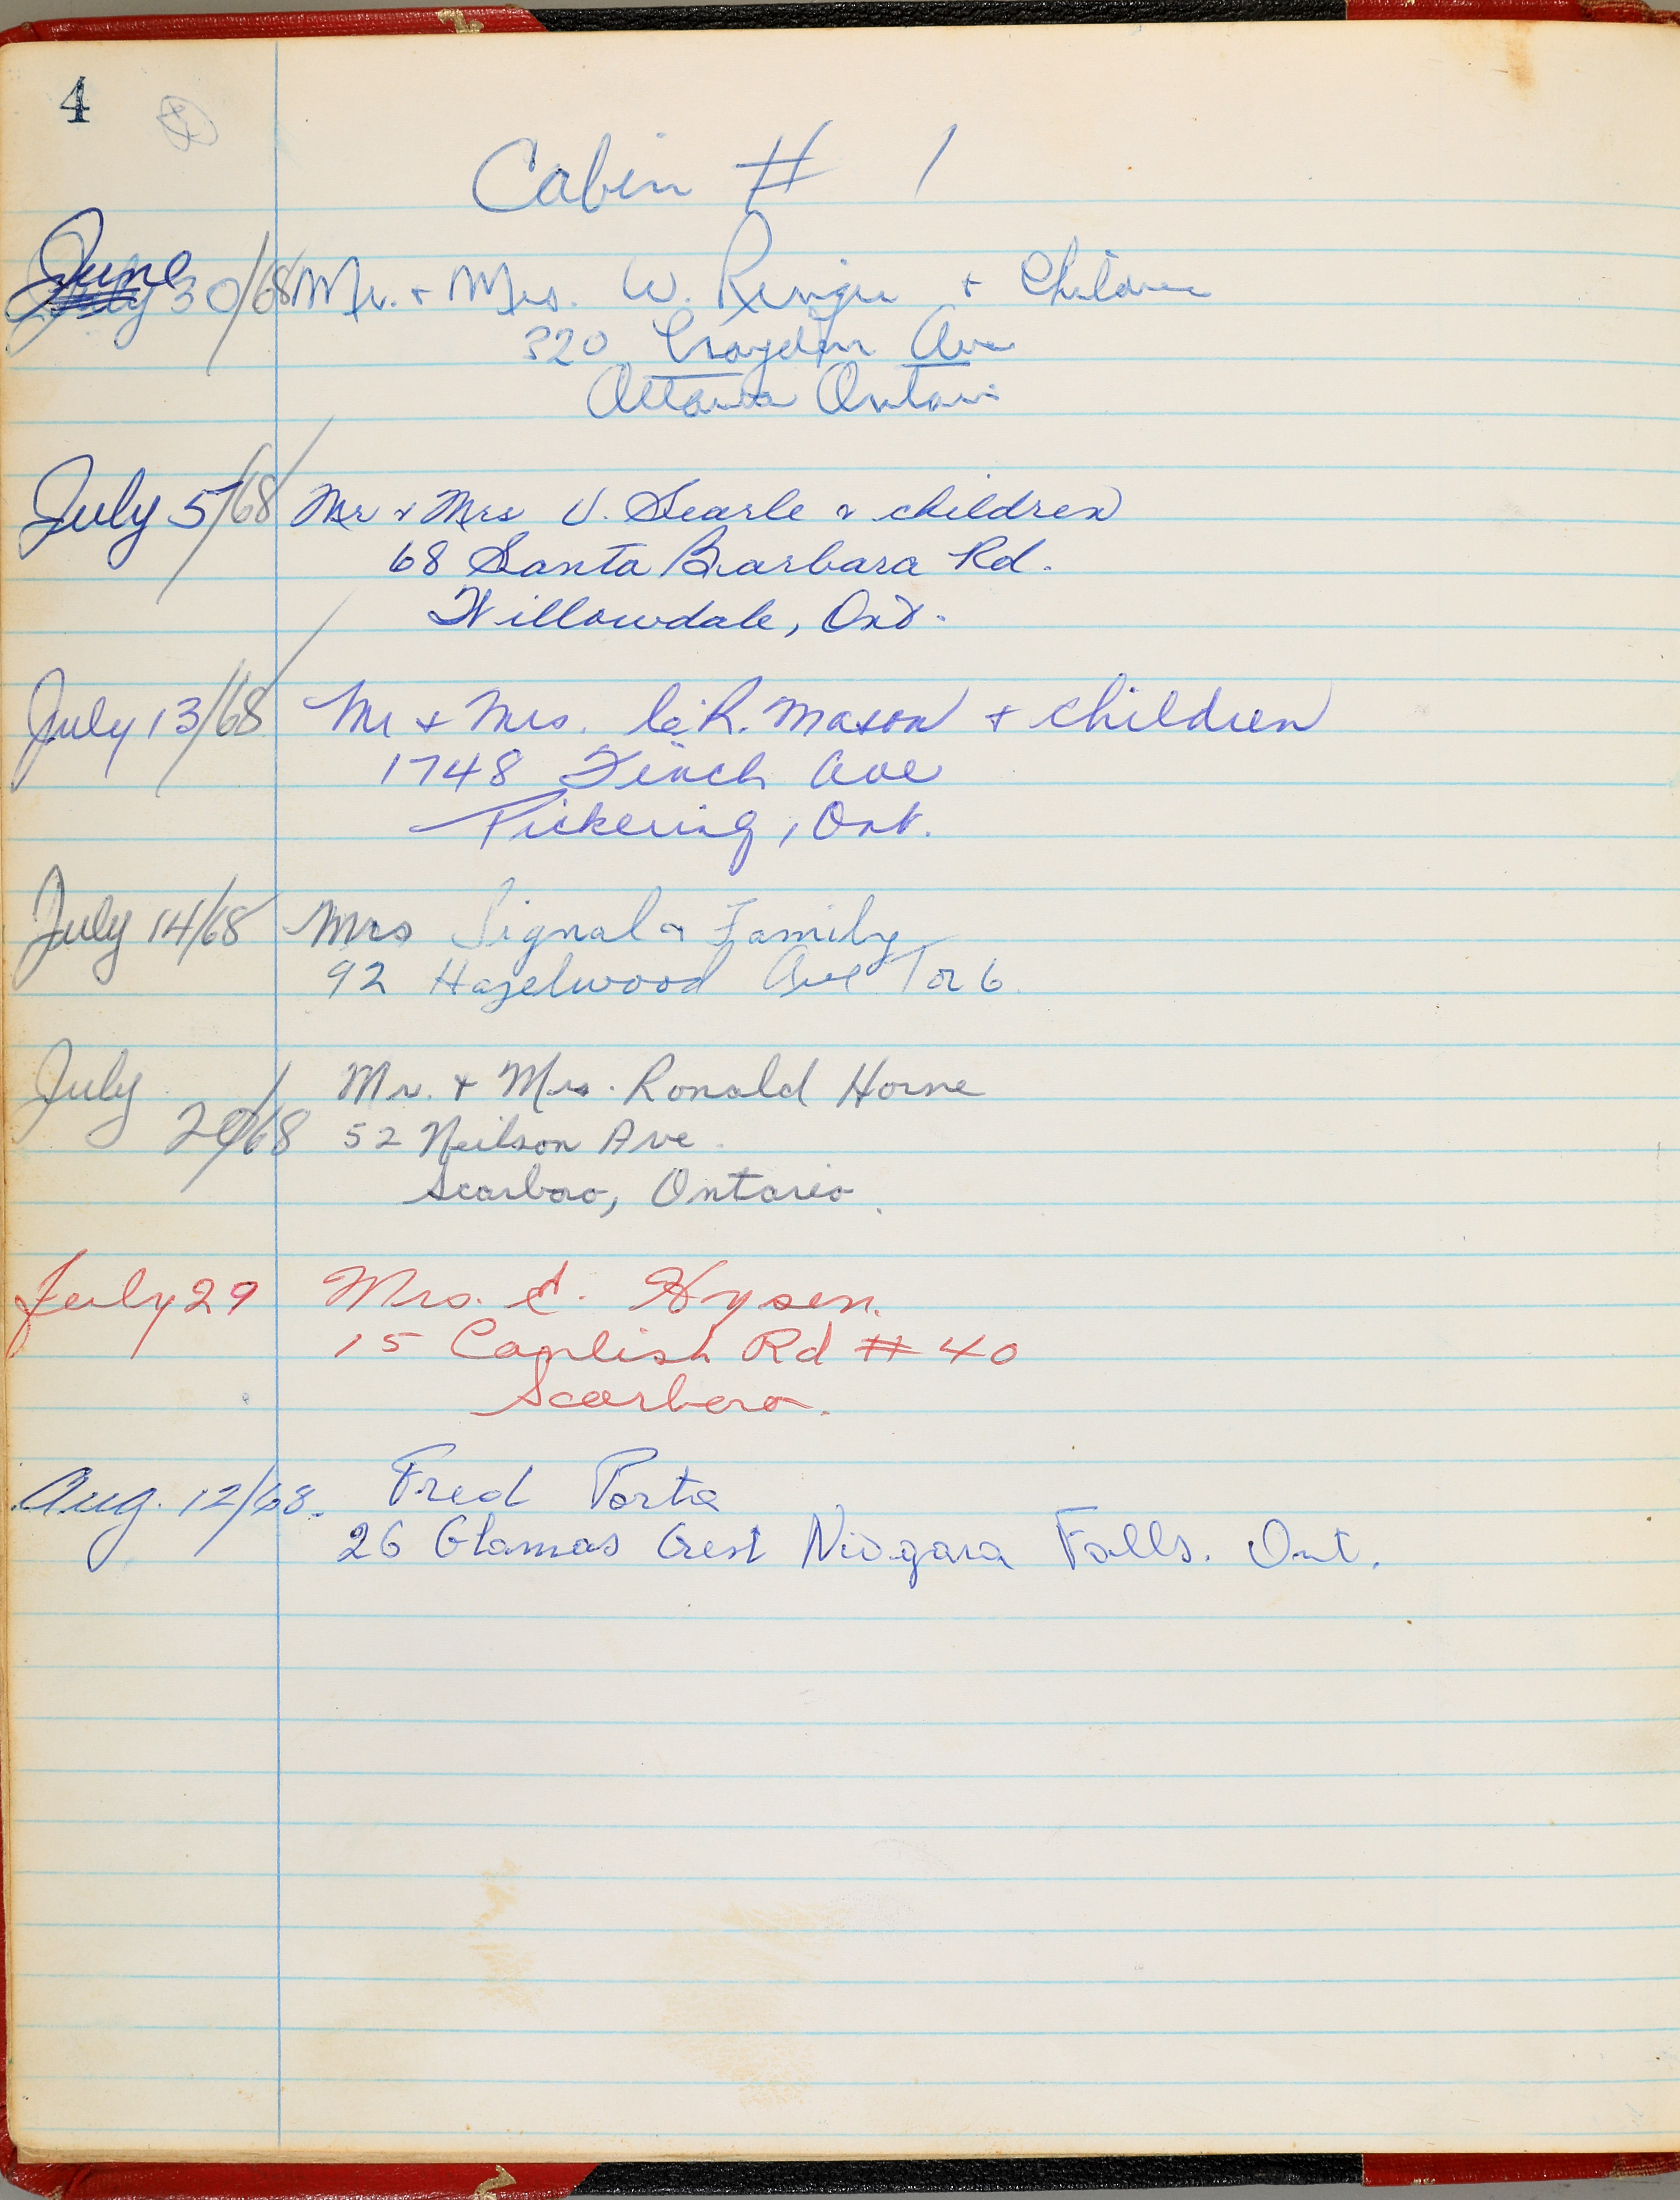 4
Cabin # 1
June 30/68 Mr. + Mrs. W. + Children
320 Croydon Ave
Ottawa Ontario
July 5/68 Mr & Mrs V. Searle & children
68 Santa Barbara Rd.
Willowdale, Ont.
July 13/68 Mr + Mrs. C.R. Mason + children
1748 Finch Ave
Pickering, Ont.
July 14/68 Mrs Signal & Family
92 Hazelwood Ave Tor 6.
July Mr. + Mrs. Ronald Horne
/68 52 Neilson Ave
Scarboro, Ontario.
July 29 Mrs. Hysen.
15 Rd # 40
Scarboro.
Aug. 12/68. Fred Porta
26 Glamas Crest Niagara Falls. Ont.